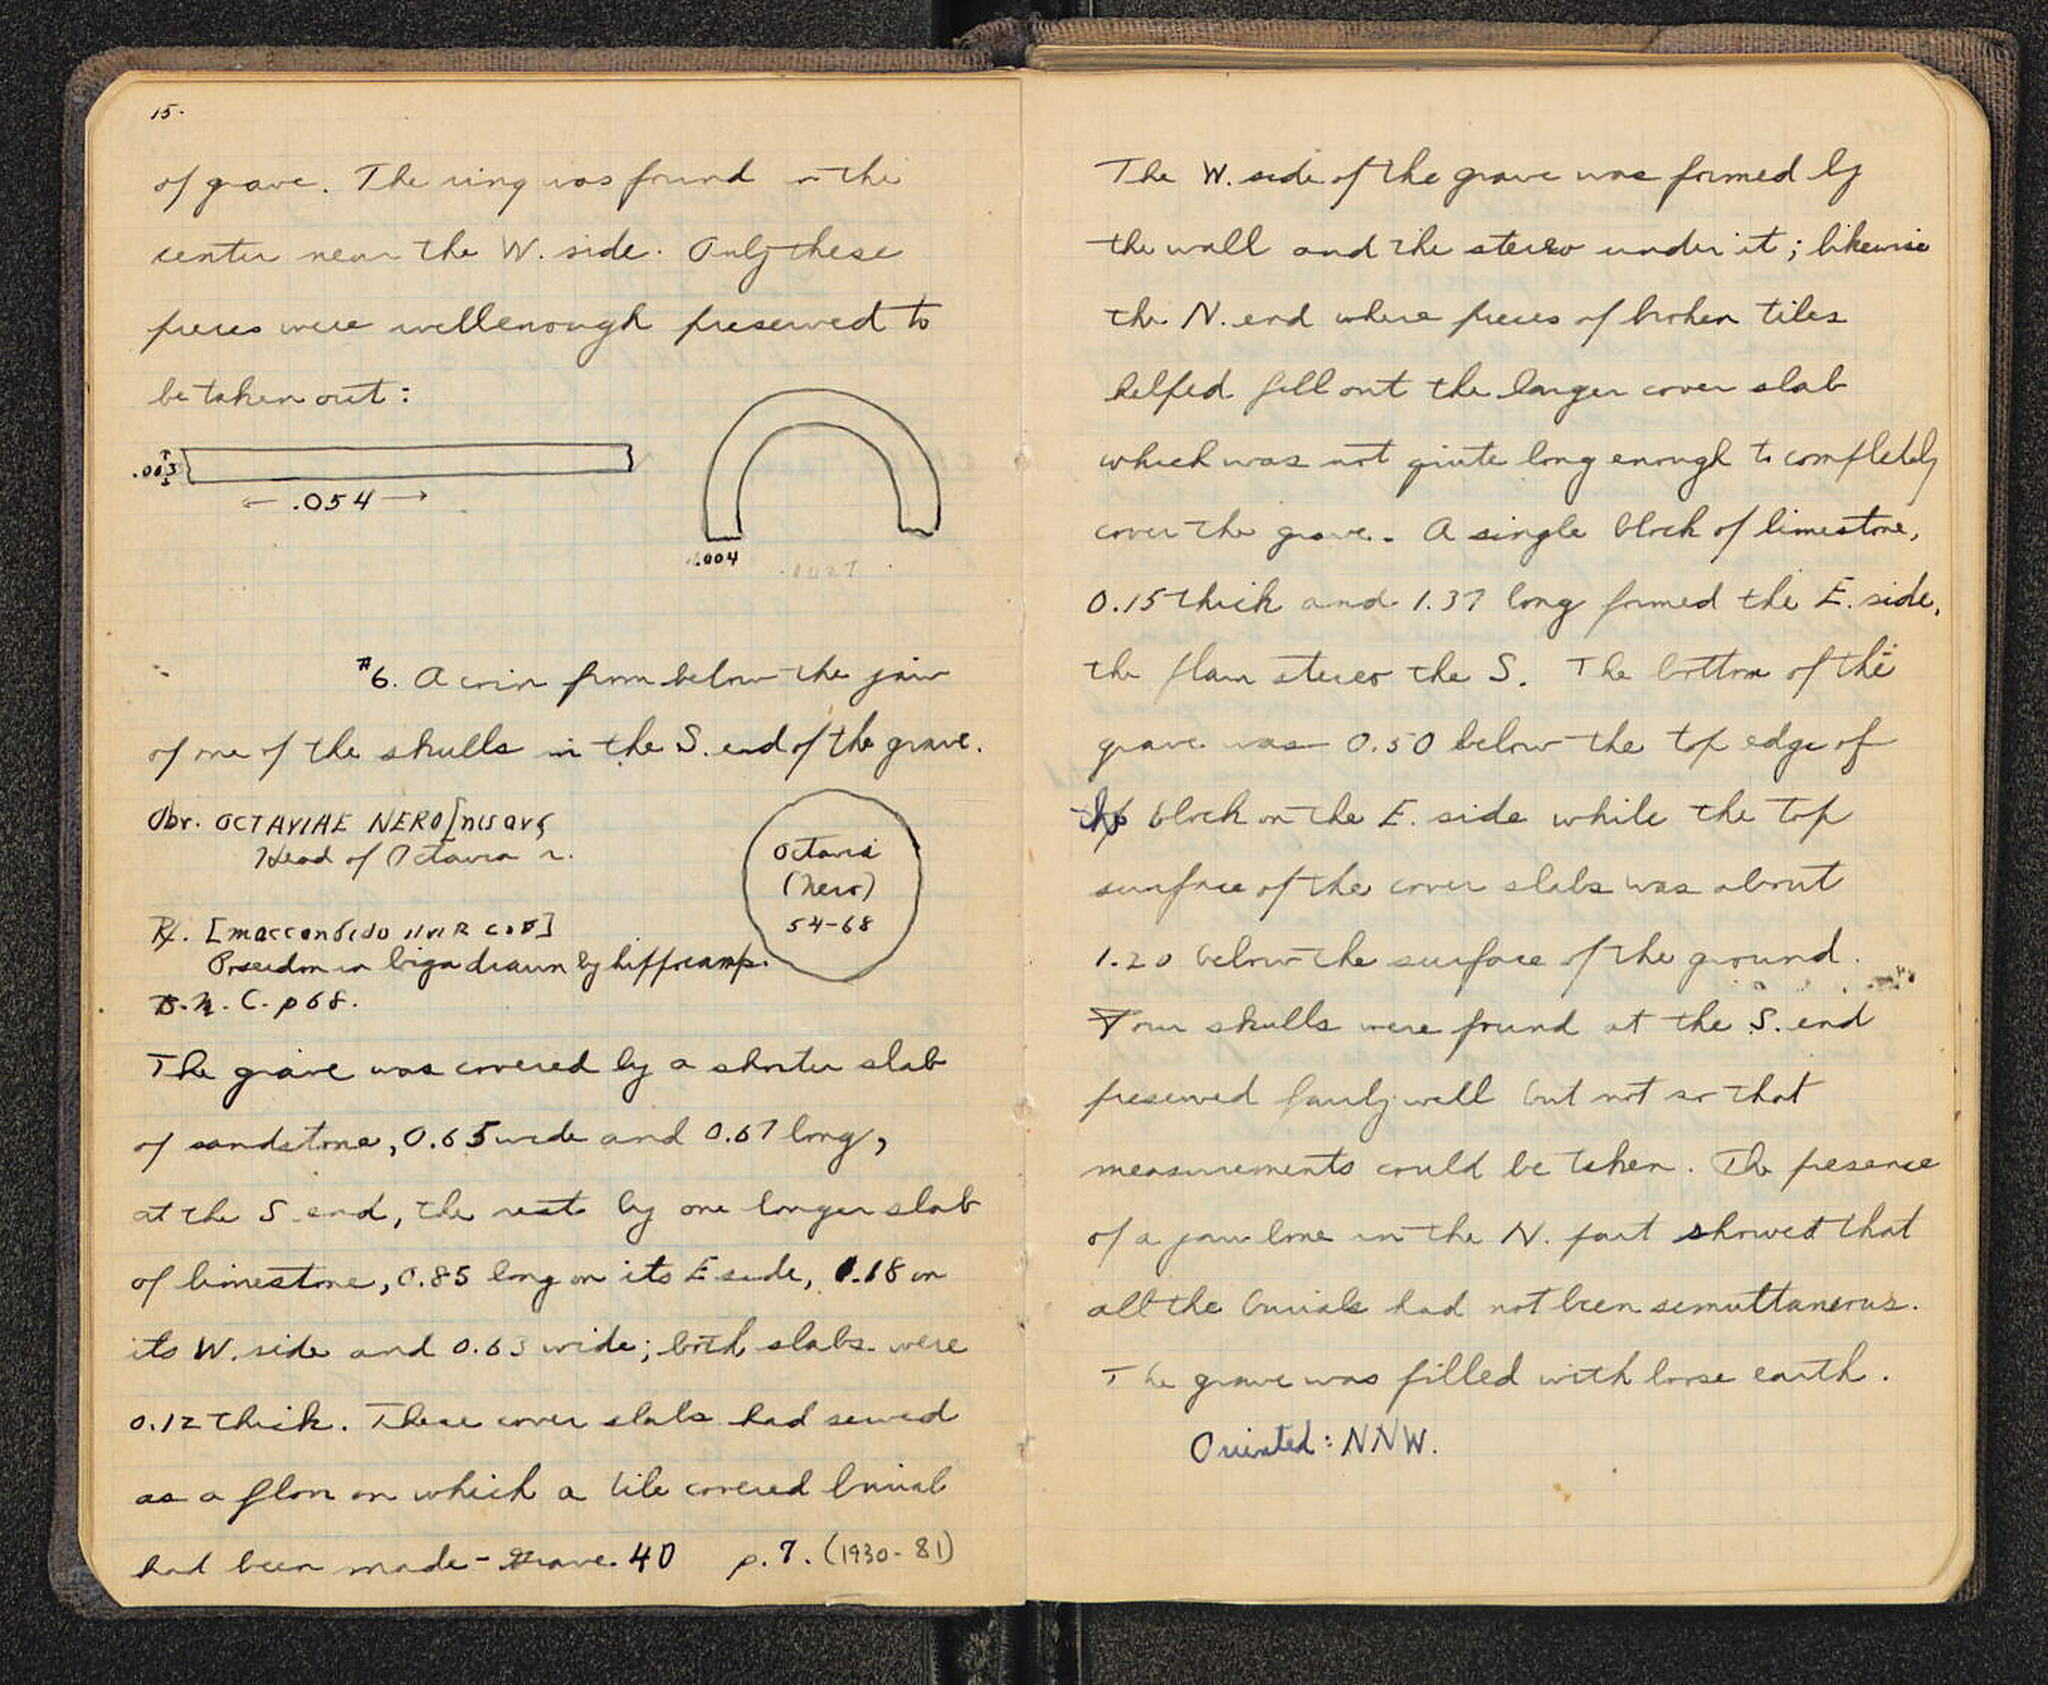 15.
of grave. The ring was found in the
center near the W. side. Only these
pieces were well enough preserved to
be taken out:
.003
← .054 →
.004
.0027
#6. A coin from below the jaw
of one of the skulls in the S. end of the grave.
Obr. OCTAVIAE NERO[NIS AVG
Head of Octavia r.
Octavia
(Nero)
54-68
R/.
Poseidon in biga drawn by hippocamp.
B.M.C. p 68.
The grave was covered by a shorter slab
of sandstone, 0.65 wide and 0.67 long,
at the S. end, the rest by one longer slab
of limestone, 0.85 long on its E side, 1.18 on
its W. side and 0.63 wide; both slabs were
0.12 thick. These cover slabs had served
as a floor on which a tile covered burial
had been made - Grave 40 p. 7. (1930-81)
The W. side of the grave was formed by
the wall and the stereo under it; likewise
the N. end where pieces of broken tiles
helped fill out the larger cover slab
which was not quite long enough to completely
cover the grave. A single block of limestone,
0.15 thick and 1.37 long formed the E. side,
the stereo the S. The bottom of the
grave was 0.50 below the top edge of
the block on the E. side while the top
surface of the cover slabs was about
1.20 below the surface of the ground.
Four skulls were found at the S. end
preserved fairly well but not so that
measurements could be taken. The presence
of a jaw bone in the N. part showed that
all the burials had not been simultaneous.
The grave was filled with loose earth.
Oriented: NNW.